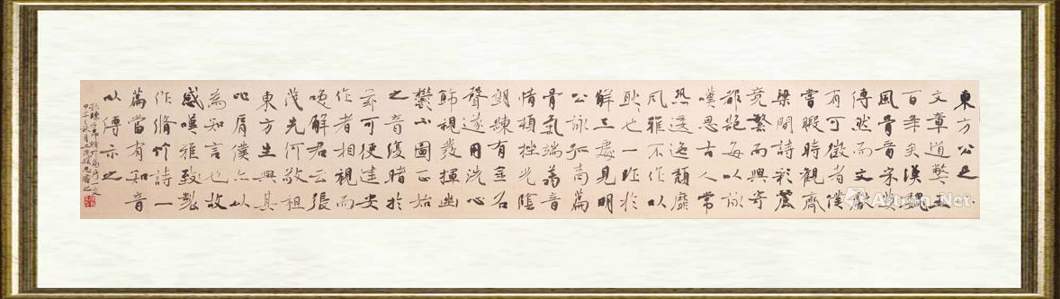 東方公足
文章道弊五
百年矣漢魏
風骨晉宋莫
傳然而文獻
有可徵者僕
嘗暇時觀齊
梁間詩彩麗
競繁而興寄
都絕每以詠
嘆思古人常
恐逶迤頹靡
風雅不作以
耿也一昨於
解三處見明
公詠孤篇
骨氣端翔音
情頓挫光
朗練有金石
聲遂用洗心
飾視發揮幽
鬱不圖正始
之音復睹於
茲可使建安
作者相視而
咲解君云張
茂先何敬祖
東方生與其
比肩僕亦以
為知言也故
感嘆雅致製
作脩竹詩一
篇當有知音
以傳示之